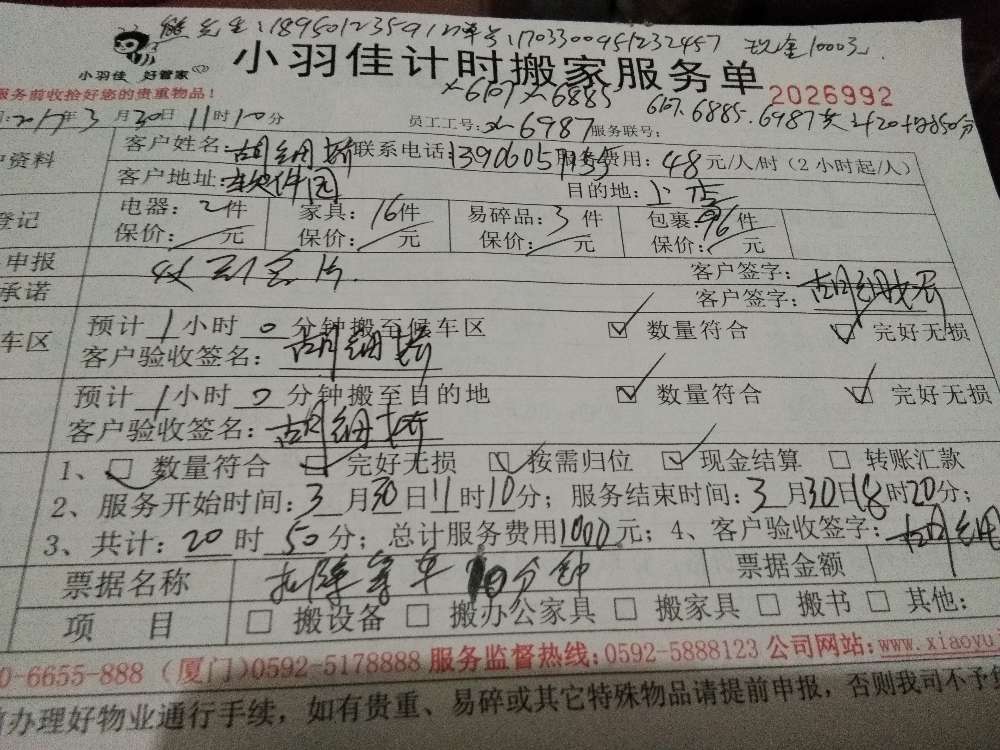 熊先生:18950123591 订单号:1703300951232457 现金1000元
小羽佳 好管家
小羽佳计时搬家服务单
服务前收拾好您的贵重物品!
x-6107 x-6885
2026992
6107.6885.6987共
2017年3月30日11时10分 员工工号:x-6987 服务联号:
资料 客户姓名: 胡细娇 联系电话: 服务费用:48元/人/时(2小时起/人)
客户地址:软件园 目的地:上店
登记 电器:2件 家具:16件 易碎品:3件 包裹:96件
保价: 元 保价: 元 保价: 元 保价: 元
申报 客户签字:
承诺 客户签字:胡细娇
车区 预计1小时0分钟搬至候车区 ☑ 数量符合 ☑ 完好无损
客户验收签名:胡细娇
预计1小时0分钟搬至目的地 ☑ 数量符合 ☑ 完好无损
客户验收签名:胡细娇
1、☑ 数量符合 ☑ 完好无损 ☑ 按需归位 ☑ 现金结算 □ 转账汇款
2、服务开始时间:3月30日11时10分;服务结束时间:3月30日18时20分;
3、共计:20时50分;总计服务费用1000元;4、客户验收签字:胡细
票据名称 扣除等车10分钟 票据金额
项 目 □ 搬设备 □ 搬办公家具 □ 搬家具 □ 搬书 □ 其他:
0-6655-888 (厦门)0592-5178888 服务监督热线:0592-5888123 公司网站:www.xiaoyu
前办理好物业通行手续,如有贵重、易碎或其它特殊物品请提前申报,否则我司不予